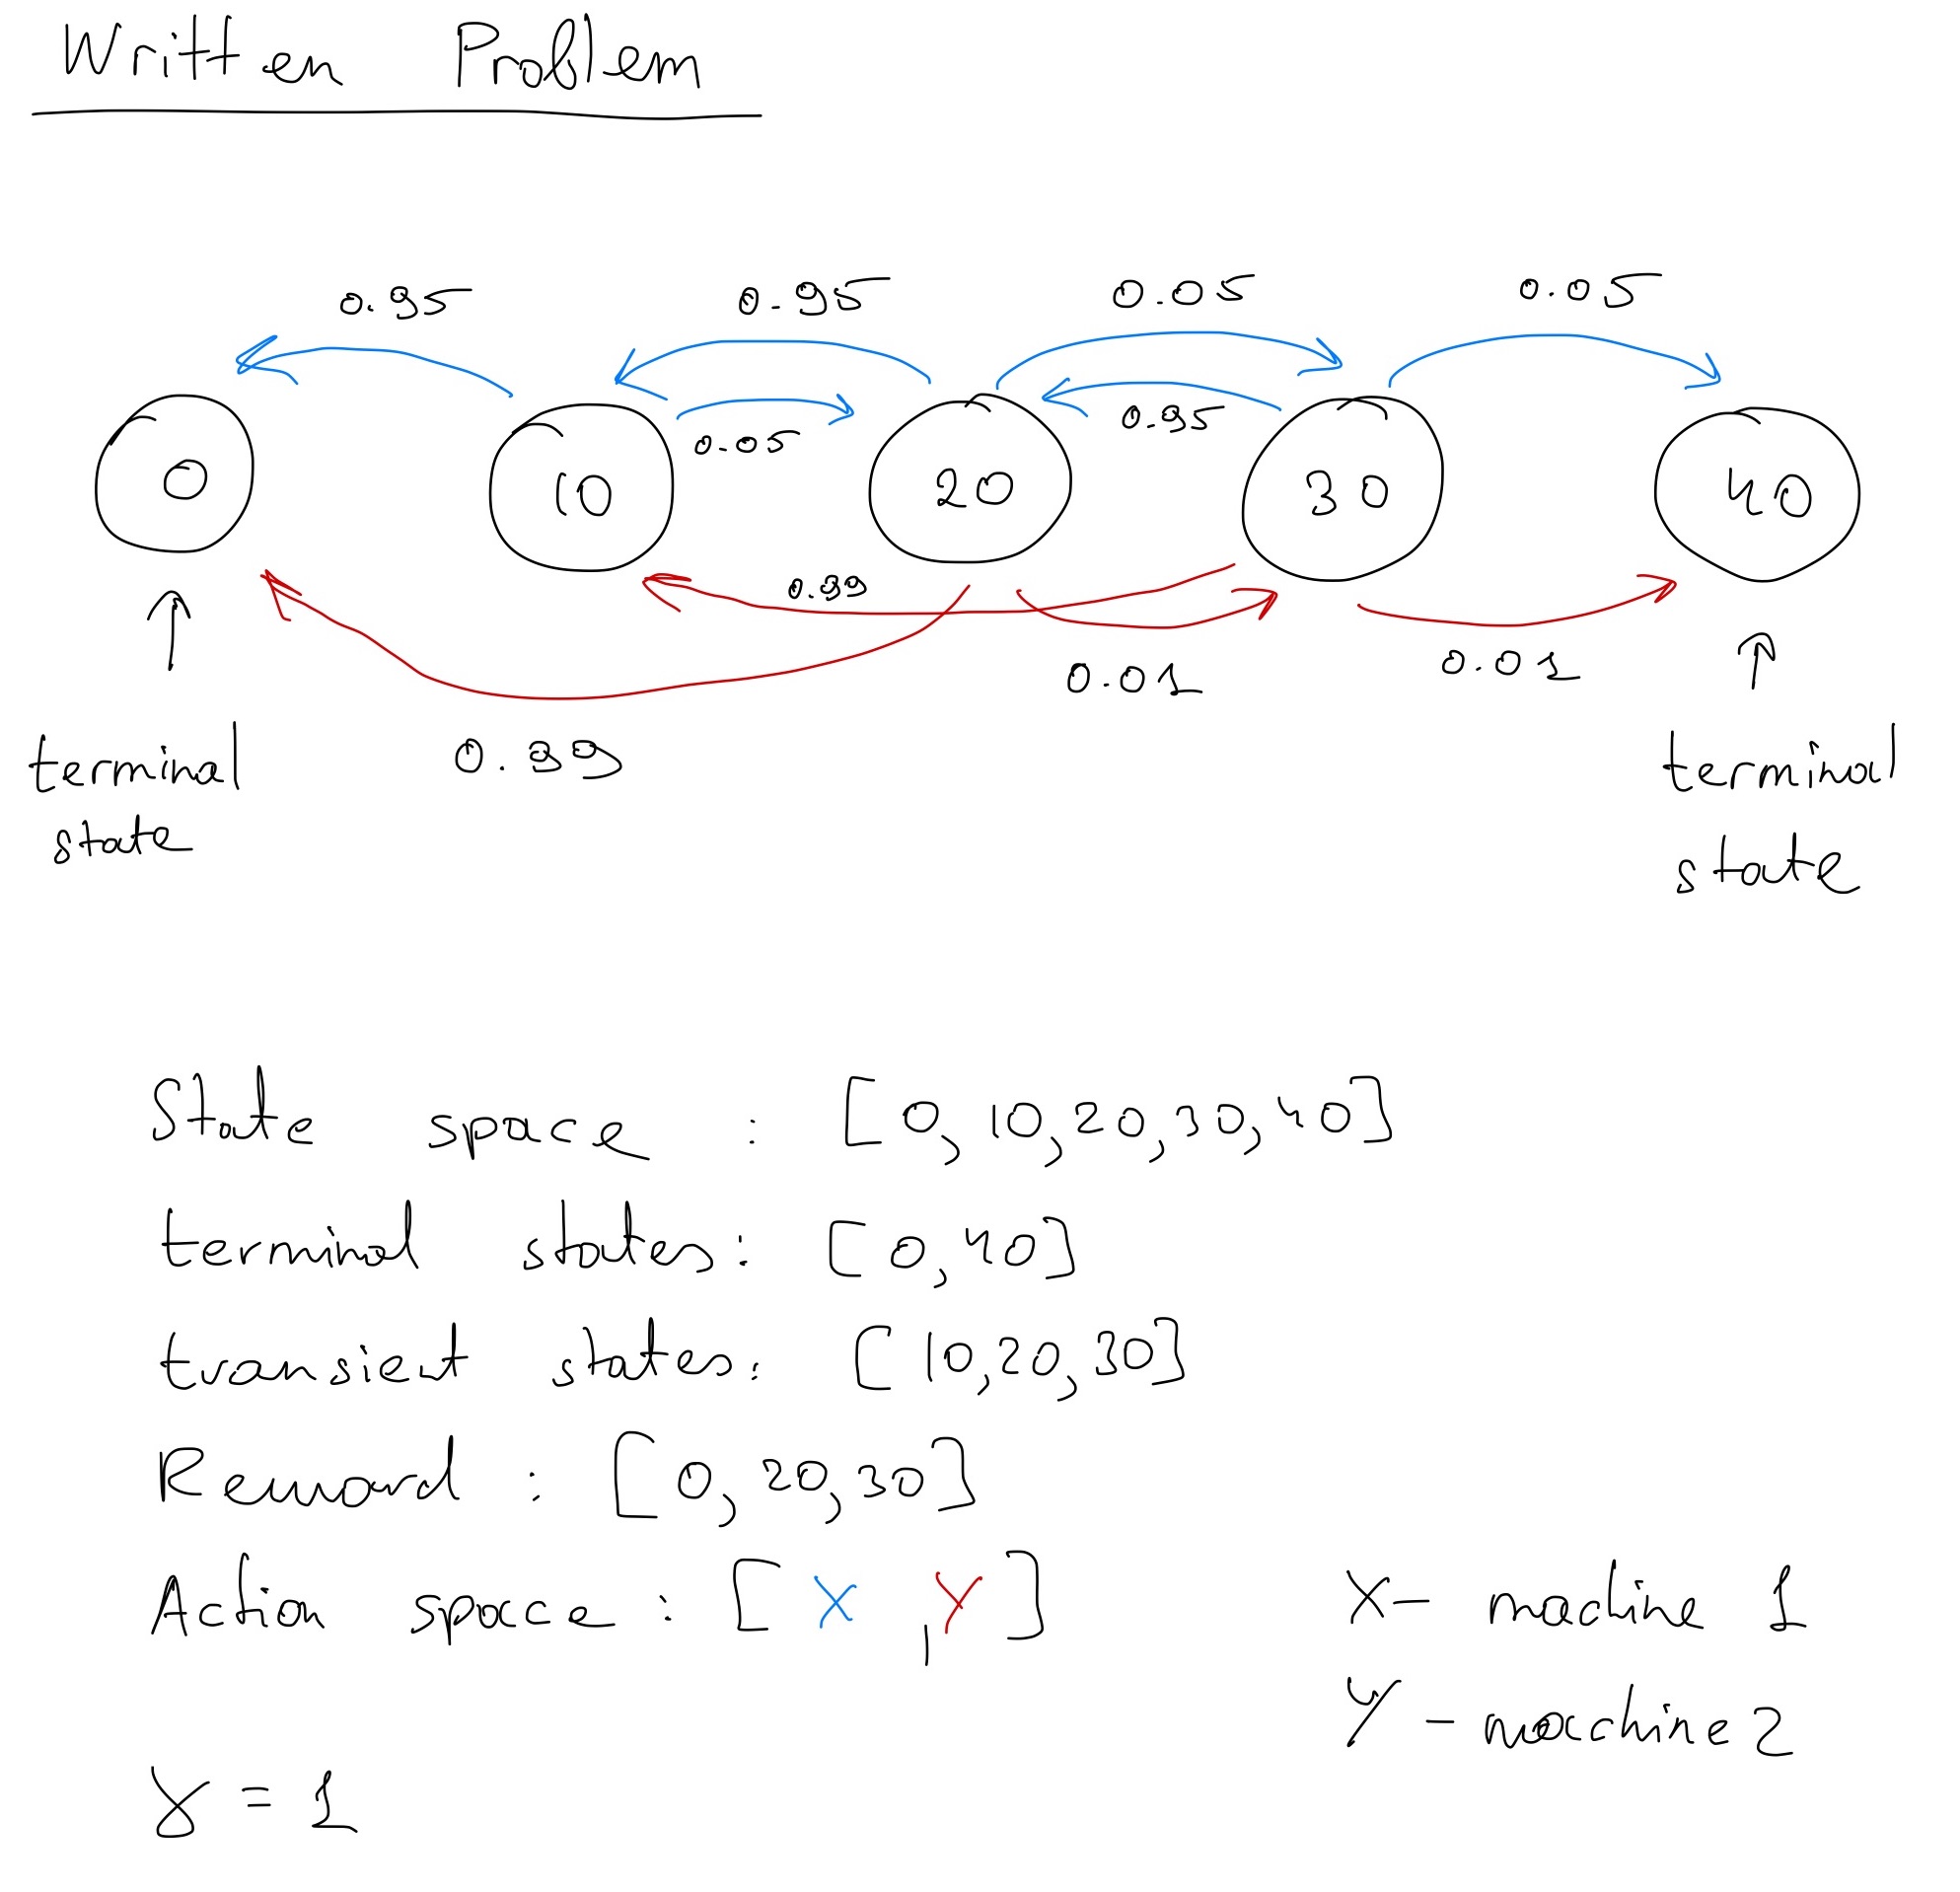 Written Problem
0.95 0.95 0.05 0.05
0.05 0.95
0 10 20 30 40
0.99
0.01 0.01
0.99
terminal state
terminal state
State space : [0, 10, 20, 30, 40]
terminal states: [0, 40]
transient states: [10, 20, 30]
Reward : [0, 20, 30]
Action space : [X, Y] X - machine 1
Y - machine 2
γ = 1